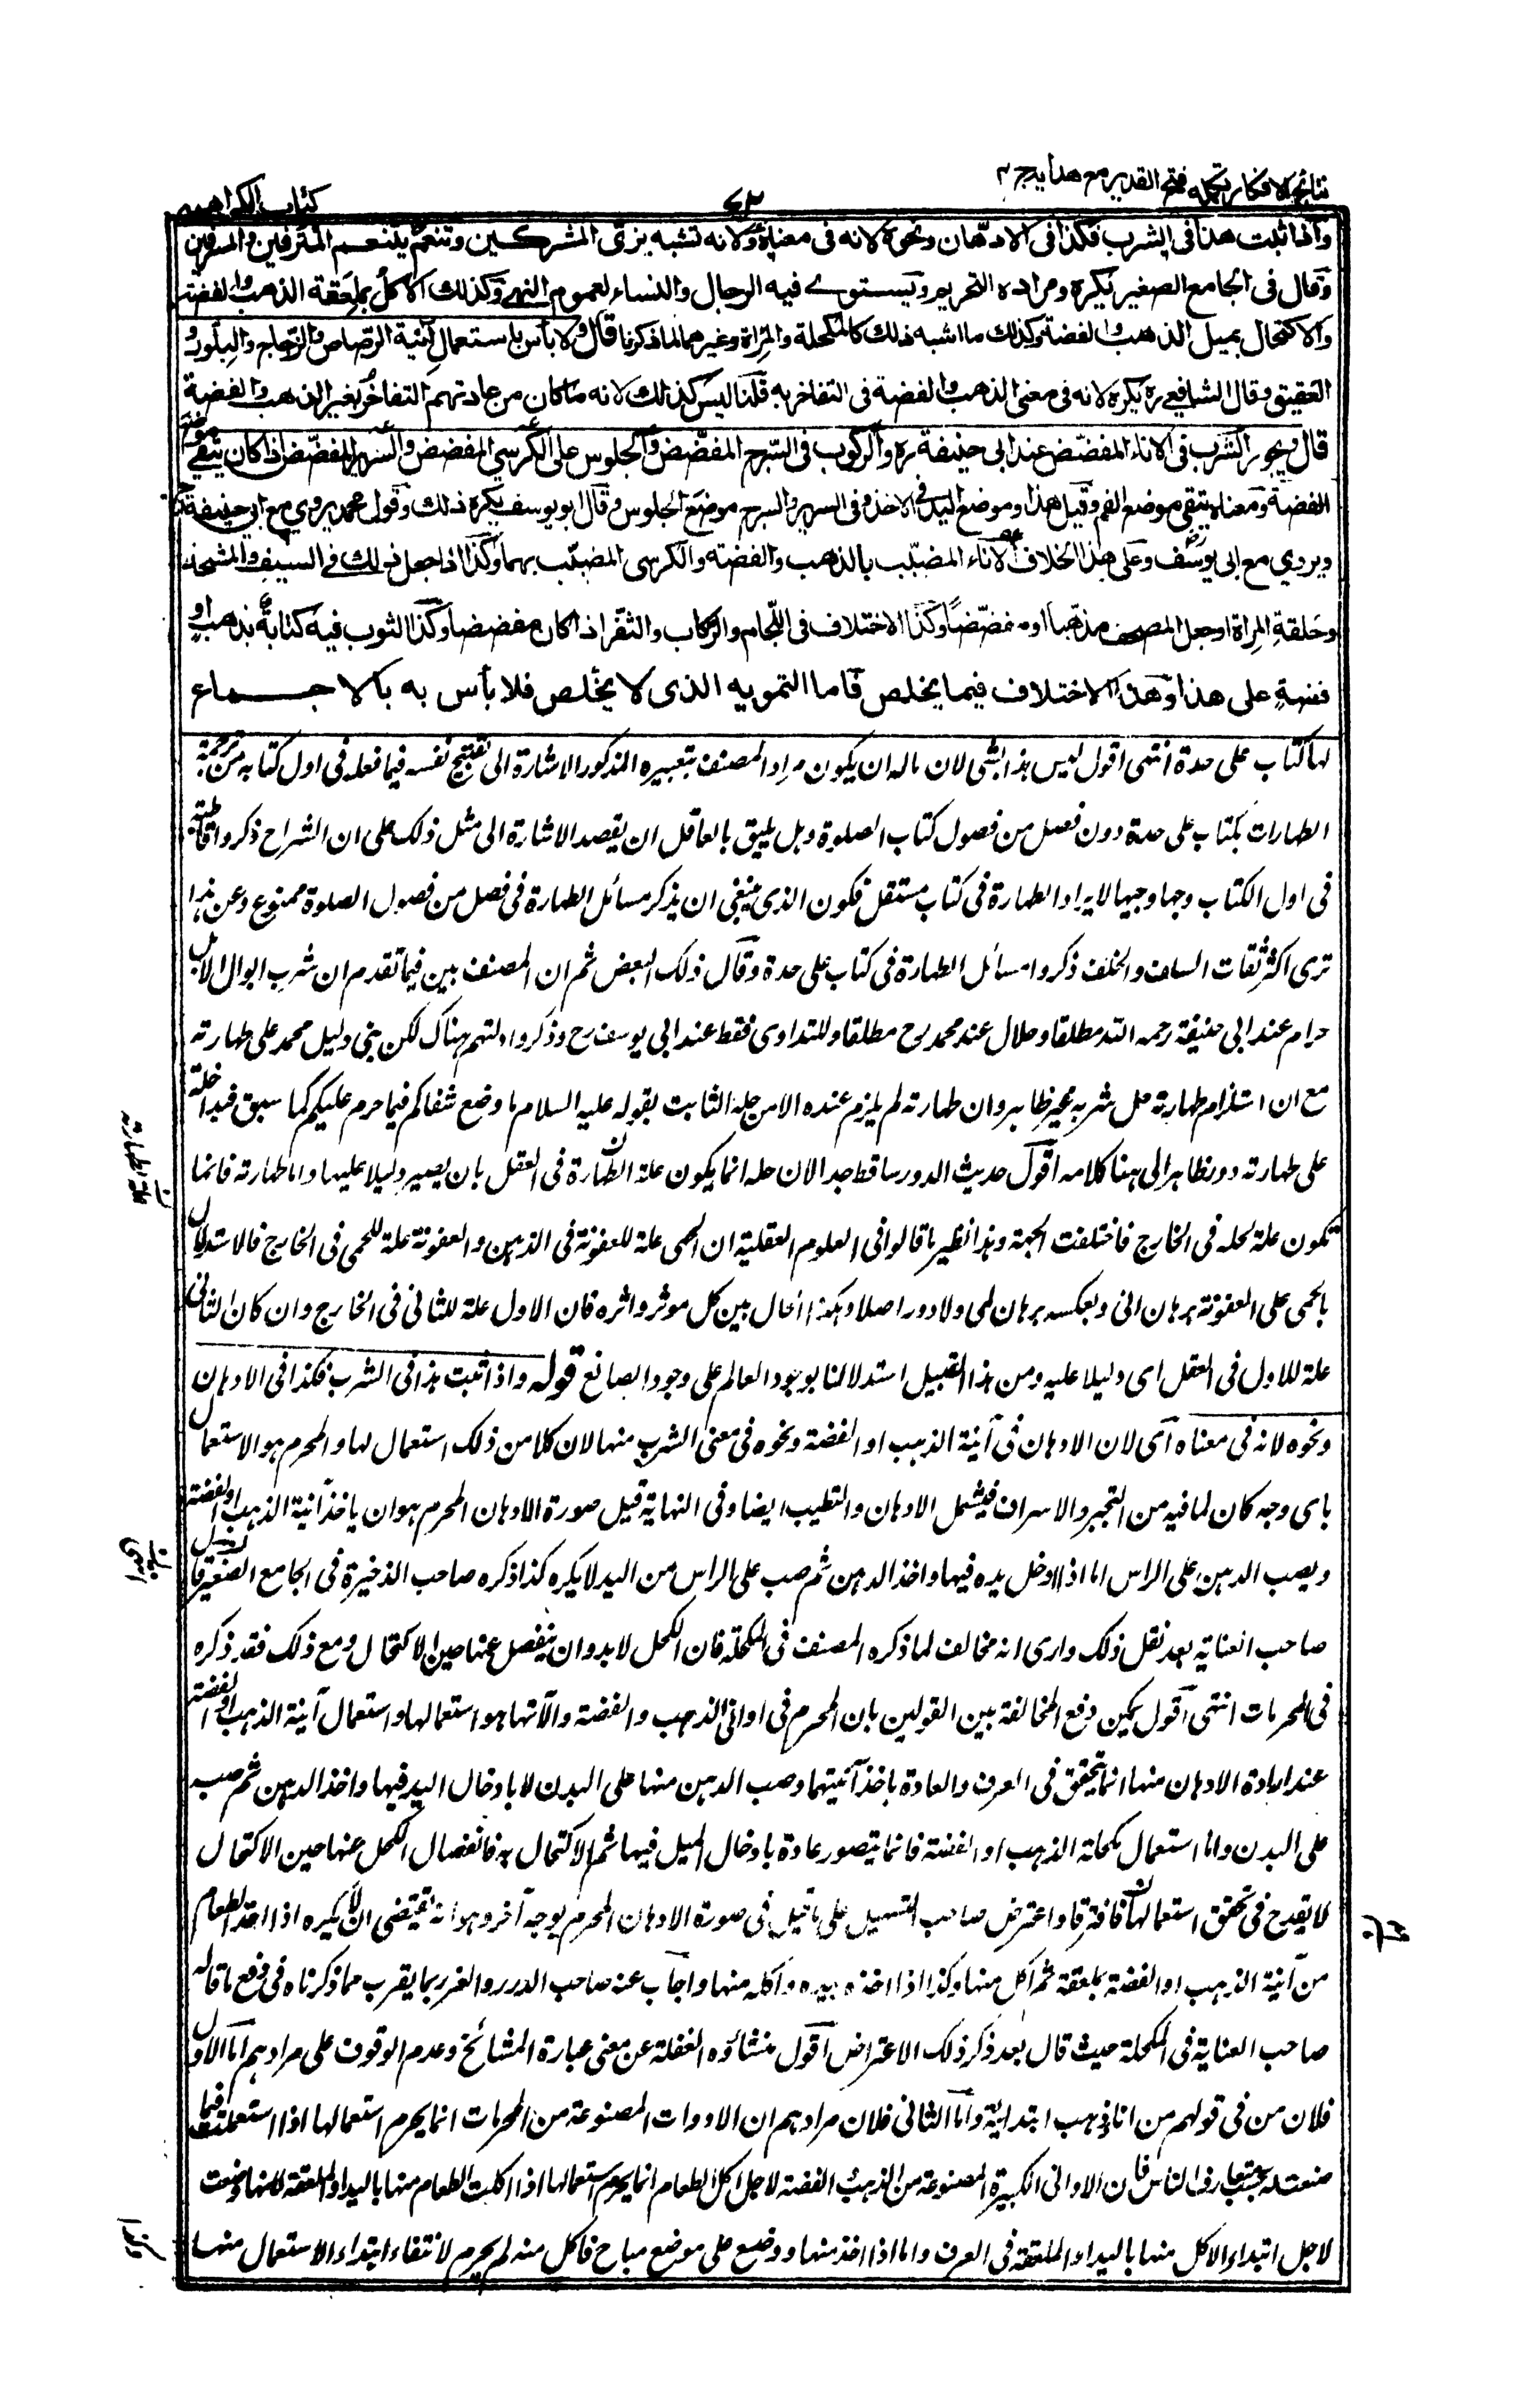 نتائج الافكار تكملہ فتح القدير مع هدايہ ج ٤
كتاب الكراهية
واذا ثبت هذا فى الشرب فكذا فى الادهان ونحوه لانه فى معناه ولانه تشبه بزى المشركين وتنعم بتنعم المترفين والمسرفين
وقال فى الجامع الصغير يكره ومراده التحريم ويستوے فيه الرجال والنساء لعموم النهى وكذلك الاكل بملعقة الذهب والفضة
والاكتحال بميل الذهب والفضة وكذلك ما اشبه ذلك كالمكحلة والمرأة وغيرهما لما ذكرنا قال ولا باس باستعمال آنية الرصاص والزجاج والبلور و
العقيق وقال الشافعے رہ يكره لانه فى معنى الذهب والفضة فى التفاخر به قلنا ليس كذلك لانه ما كان من عادتهم التفاخر بغير الذهب والفضة
قال ويجوز الشرب فى الاناء المفضض عند ابى حنيفة رہ والركوب فى السرج المفضض والجلوس على الكرسي المفضض والسرير المفضض اذا كان يتقي موضع
الفضة ومعناه يتقى موضع الفم وقيل هذا وموضع اليد فى الاخذ وفى السرير والسرج موضع الجلوس وقال ابو يوسف يكره ذلك وقول محمد يروي مع ابي حنيفة
ويروي مع ابى يوسف وعلى هذا الخلاف الاناء المضبب بالذهب والفضة والكرسى المضبب بهما وكذا اذا جعل ذلك فے السيف والمشحذ
وحلقة المراة او جعل المصحف مذهبا او مفضضا وكذا الاختلاف فى اللجام والركاب والثفر اذا كان مفضضا وكذا الثوب فيه كتابة بذهب او
فضة على هذا وهذا الاختلاف فيما يخلص فاما التمويه الذى لا يخلص فلا بأس به بالاجماع
لها كتاب على حدة انتهى اقول ليس هذا بشى لان مآله ان يكون مراد المصنف بتعبيره المذكور الاشارة الى تقبيح نفسه فيما فعله فى اول كتابه من ترجمة
الطهارات بكتاب على حدة دون فصل من فصول كتاب الصلوة وهل يليق بالعاقل ان يقصد الاشارة الى مثل ذلك على ان الشراح ذكروا قاطبة
فى اول الكتاب وجها وجيها لايراد الطهارة فى كتاب مستقل فكون الذى ينبغى ان يذكر مسائل الطهارة فى فصل من فصول الصلوة ممنوع وعن هذا
ترى اكثر ثقات السلف والخلف ذكروا مسائل الطهارة فى كتاب على حدة وقال ذلك البعض ثم ان المصنف بين فيما تقدم ان شرب ابوال الابل
حرام عند ابى حنيفة رحمه الله مطلقا وحلال عند محمد رح مطلقا وللتداوى فقط عند ابى يوسف رح وذكروا ادلتهم هناك لكن بنى دليل محمد على طهارته
مع ان استلزام طهارته حل شربه غير ظاهر وان طهارته لم يلزم عنده الا من حله الثابت بقوله عليه السلام ما وضع شفاكم فيما حرم عليكم كما سبق فبداخلة
على طهارته دور ظاهر الى هنا كلامه اقول حديث الدور ساقط جدا لان حله انما يكون علة الطهارة فى العقل بان يصير دليلا عليها واما طهارته فانما
تكون علة لحله فى الخارج فاختلفت الجهة وهذا نظير ما قالوا فى العلوم العقلية ان الحمى علة للعفونة فى الذهن والعفونة علة للحمى فى الخارج فالاستدلال
بالحمى على العفونة برهان انى وبعكسه برهان لمى ولا دور اصلا وهكذا الحال بين كل موثر واثره فان الاول علة للثانى فى الخارج وان كان الثانى
علة للاول فى العقل اى دليلا عليه ومن هذا القبيل استدلالنا بوجود العالم على وجود الصانع قوله واذا ثبت هذا فى الشرب فكذا فى الادهان
ونحوه لانه فى معناه اى لان الادهان فى آنية الذهب او الفضة ونحوه فى معنى الشرب منها لان كلا من ذلك استعمال لها والمحرم هو الاستعمال
باى وجه كان لما فيه من التجبر والاسراف فيشمل الادهان والتطيب ايضا وفى النهاية قيل صورة الادهان المحرم هو ان ياخذ آنية الذهب او الفضة
ويصب الدهن على الراس اما اذا ادخل يده فيها واخذ الدهن ثم صب على الراس من اليد لا يكره كذا ذكره صاحب الذخيرة فى الجامع الصغير قال
صاحب العناية بعد نقل ذلك وارى انه مخالف لما ذكره المصنف فى المكحلة فان الكحل لا بد وان ينفصل عنها حين الاكتحال ومع ذلك فقد ذكره
فى المحرمات انتهى اقول يمكن دفع المخالفة بين القولين بان المحرم فى اوانى الذهب والفضة وآلاتها هو استعمالها واستعمال آنية الذهب او الفضة
عند ارادة الادهان منها انما يتحقق فى العرف والعادة باخذ آنيتهما وصب الدهن منها على البدن لا بادخال اليد فيها واخذ الدهن ثم صب
على البدن واما استعمال مكحلة الذهب او الفضة فانما يتصور عادة بادخال الميل فيها ثم الاكتحال به فانفصال الكحل عنها حين الاكتحال
لا يقدح فى تحقق استعمالها فافترقا واعترض صاحب التسهيل على ما قيل فى صورة الادهان المحرم بوجه آخر وهو انه يقتضى ان لا يكره اذا اخذ الطعام
من آنية الذهب او الفضة بملعقة ثم اكل منها وكذا اذا اخذه بيده واكله منها واجاب عنه صاحب الدرر والغرر بما يقرب مما ذكرناه فى دفع ما قاله
صاحب العناية فى المكحلة حيث قال بعد ذكر ذلك الاعتراض اقول منشاؤه الغفلة عن معنى عبارة المشائخ وعدم الوقوف على مرادهم اما الاول
فلان من فى قولهم من اناء ذهب ابتدائية واما الثانى فلان مرادهم ان الادوات المصنوعة من المحرمات انما يحرم استعمالها اذا استعملت فيما
صنعت له بحسب متعارف الناس فان الاوانى الكبيرة المصنوعة من الذهب والفضة لاجل اكل الطعام انما يحرم استعمالها اذا اكلت الطعام منها باليد او الملعقة لانها وضعت
لاجل ابتداء الاكل منها باليد او الملعقة فى العرف واما اذا اخذ منها ووضع على موضع مباح فاكل منه لم يحرم لانتفاء ابتداء الاستعمال منها
وكذا